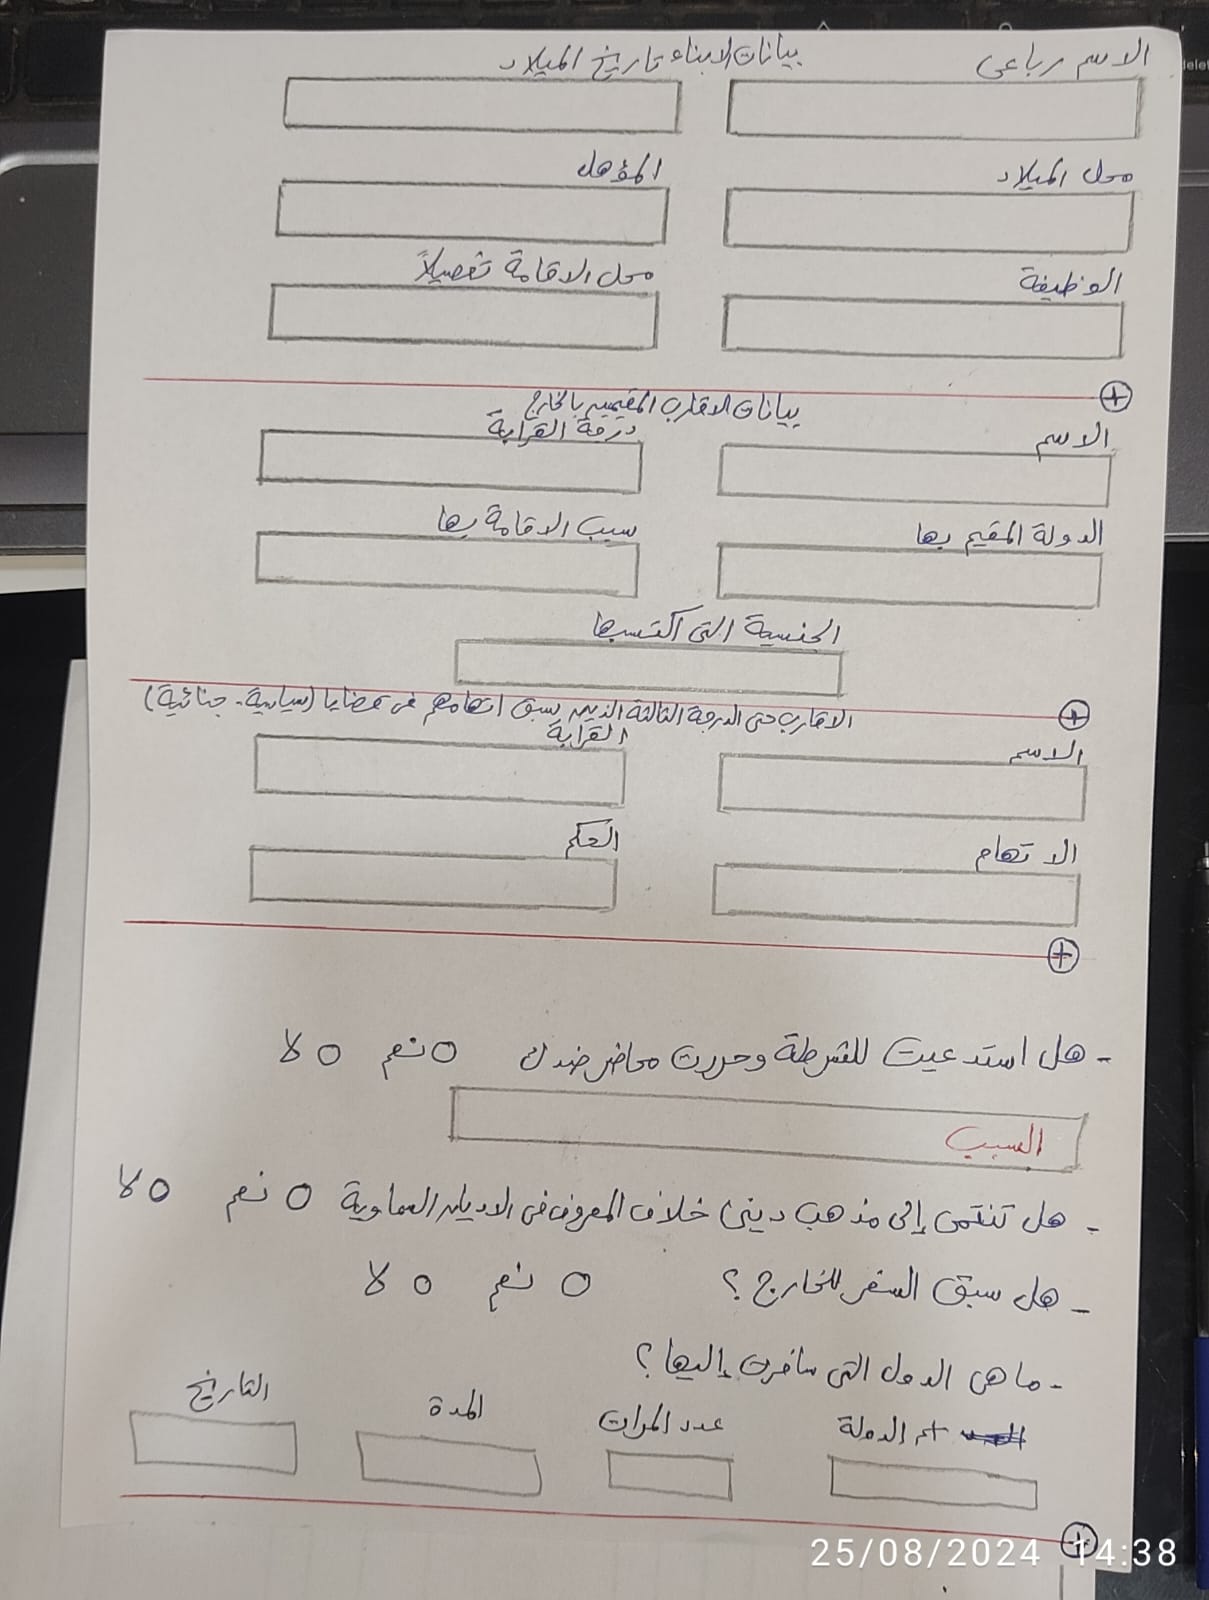 بيانات الابناء
الاسم رباعى تاريخ الميلاد
محل الميلاد المؤهل
الوظيفة محل الاقامة تفصيلاً
بيانات الاقارب المقيمين بالخارج
الاسم درجة القرابة
الدولة المقيم بها سبب الاقامة بها
الجنسية التى اكتسبها
الاقارب حتى الدرجة الثالثة الذين سبق اتهامهم فى قضايا (سياسية - جنائية)
الاسم القرابة
الاتهام الحكم
- هل استدعيت للشرطة وحررت محاضر ضدك نعم لا
السبب
- هل تنتمى إلى مذهب دينى خلاف المعروف فى الاديان السماوية نعم لا
- هل سبق السفر للخارج ؟ نعم لا
- ما هى الدول التى سافرت إليها ؟
اسم الدولة عدد المرات المدة التاريخ
25/08/2024 14:38
delete